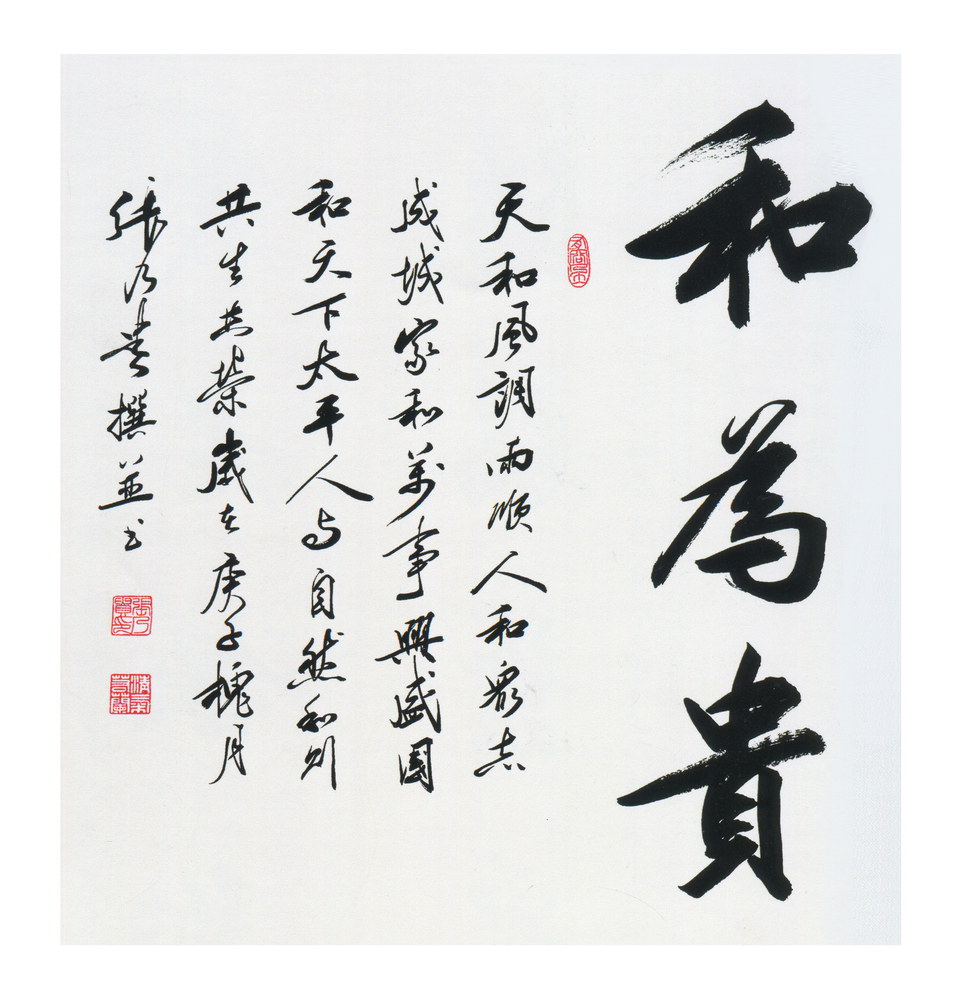 和為貴
天和風調雨順人和衆志
成城家和萬事興盛國
和天下太平人与自然和則
共生共榮歲在庚子槐月
張乃貴撰並书